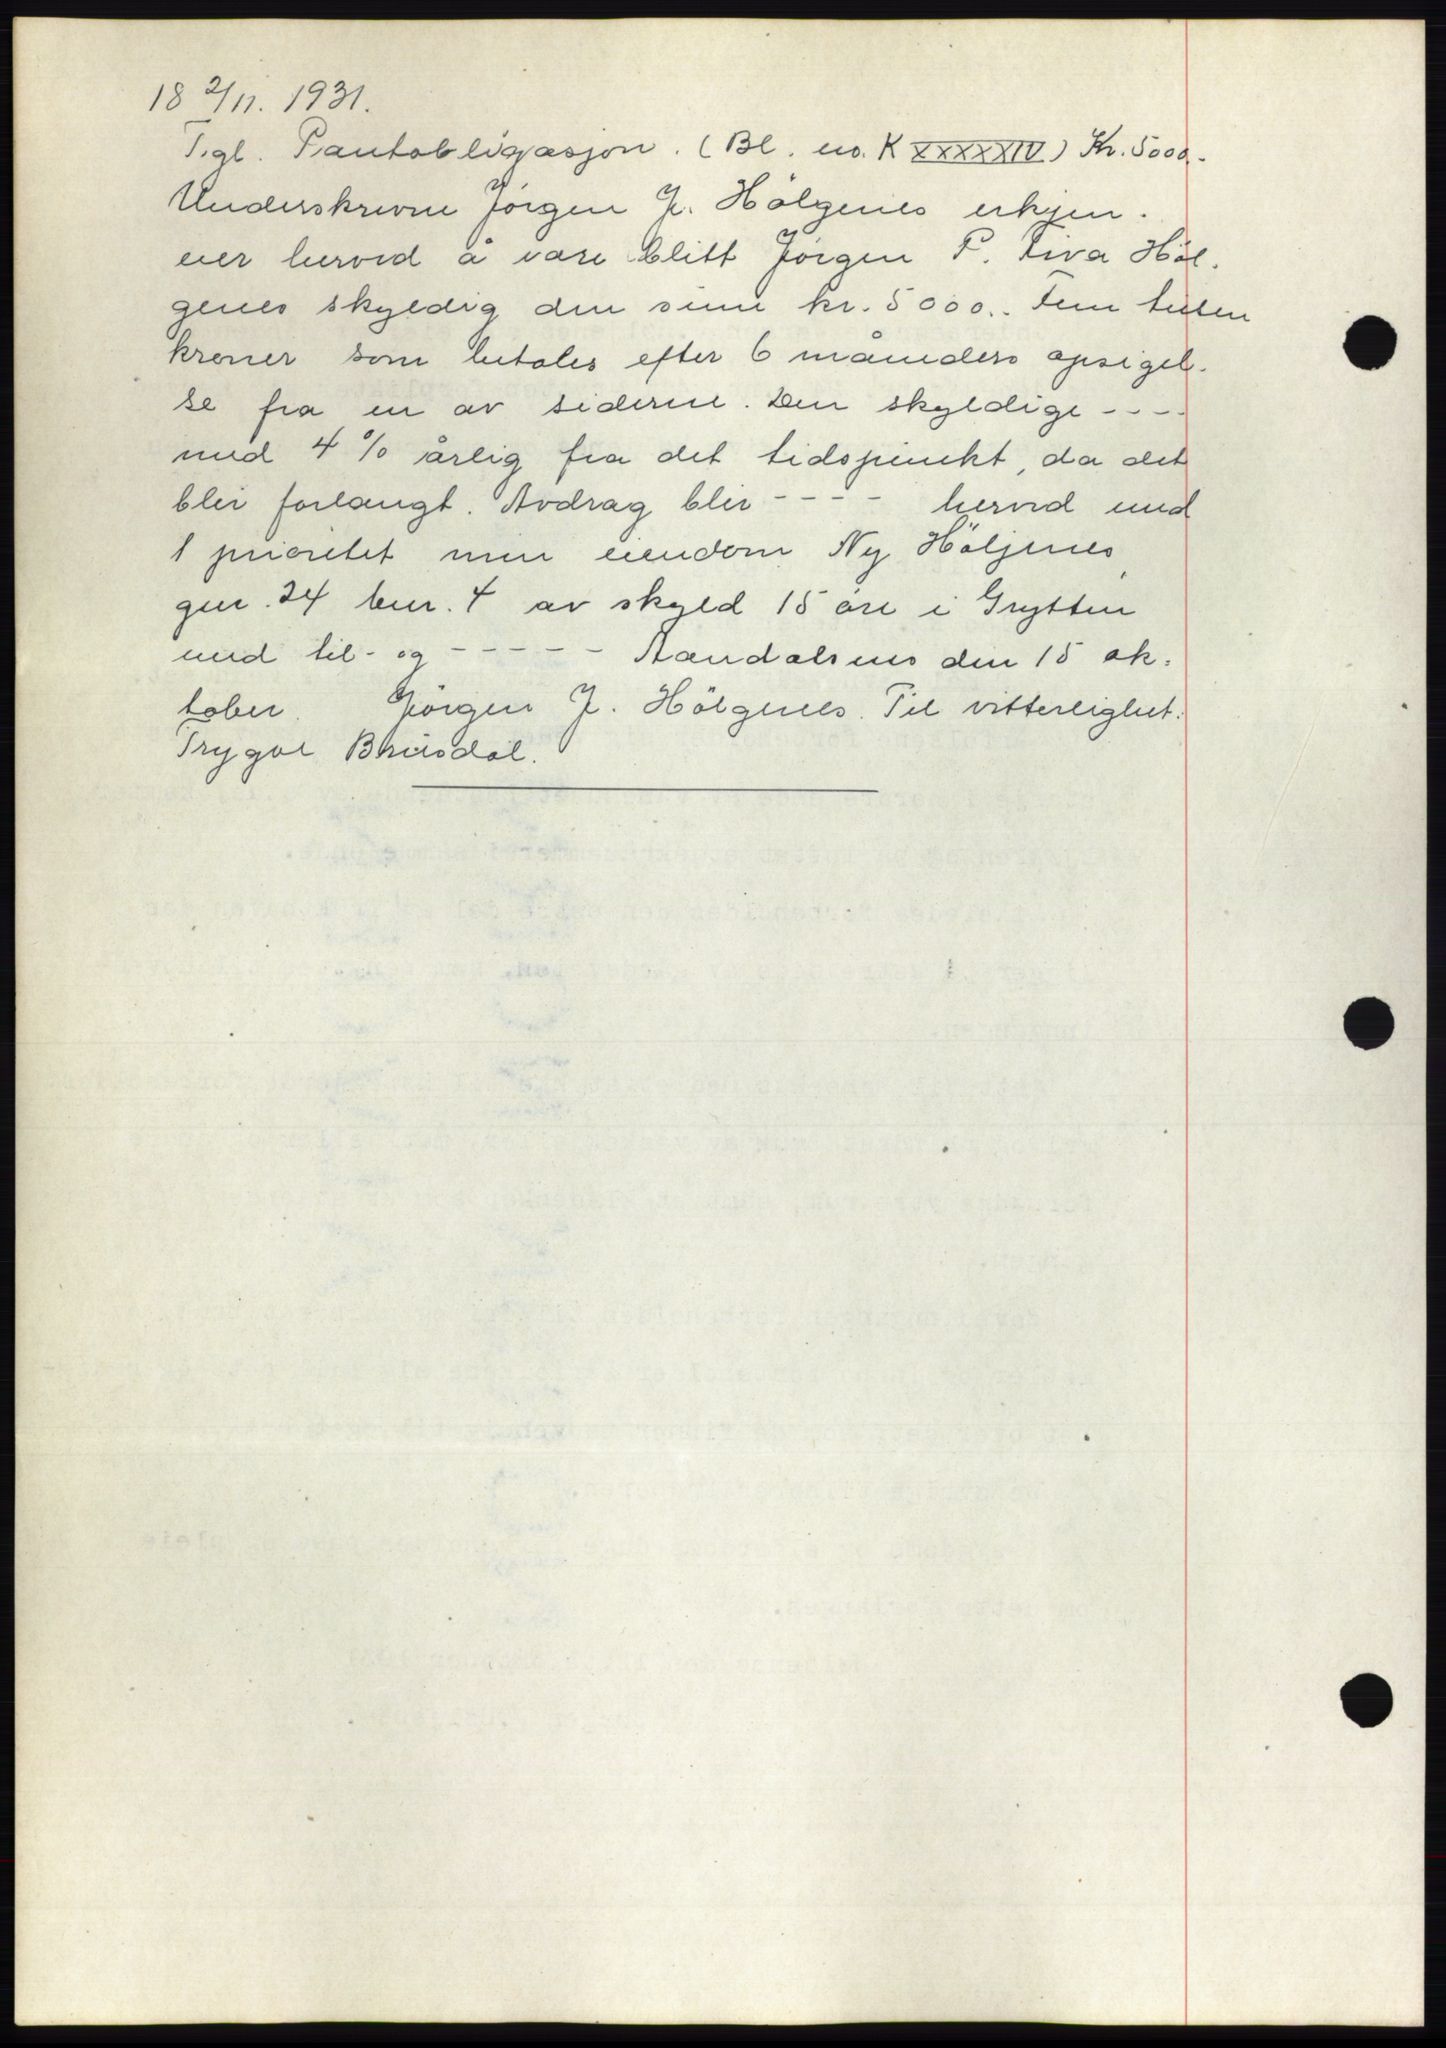 18 2/11. 1931.
Tgl. Pantobligasjon. (Bl. no. K XXXXXIV) Kr. 5000.-
Underskrevne Jörgen J. Hölgenes erkjen-
ner herved å være blitt Jörgen P. Tiva Höl-
genes skyldig den sum kr. 5000.- Fem tusen
kroner som betales efter 6 måneders opsigel-
se fra en av siderne. Den skyldige ----
med 4 % årlig fra det tidspunkt, da det
blir forlangt. Avdrag blir ---- herved med
1 prioritet min eiendom Ny Höljenes,
gnr. 24 bnr. 4 av skyld 15 öre i Grytten
med til- og ----- Aandalsnes den 15 ok-
tober. Jörgen J. Hölgenes. Til vitterlighet:
Trygve Brüsdal.